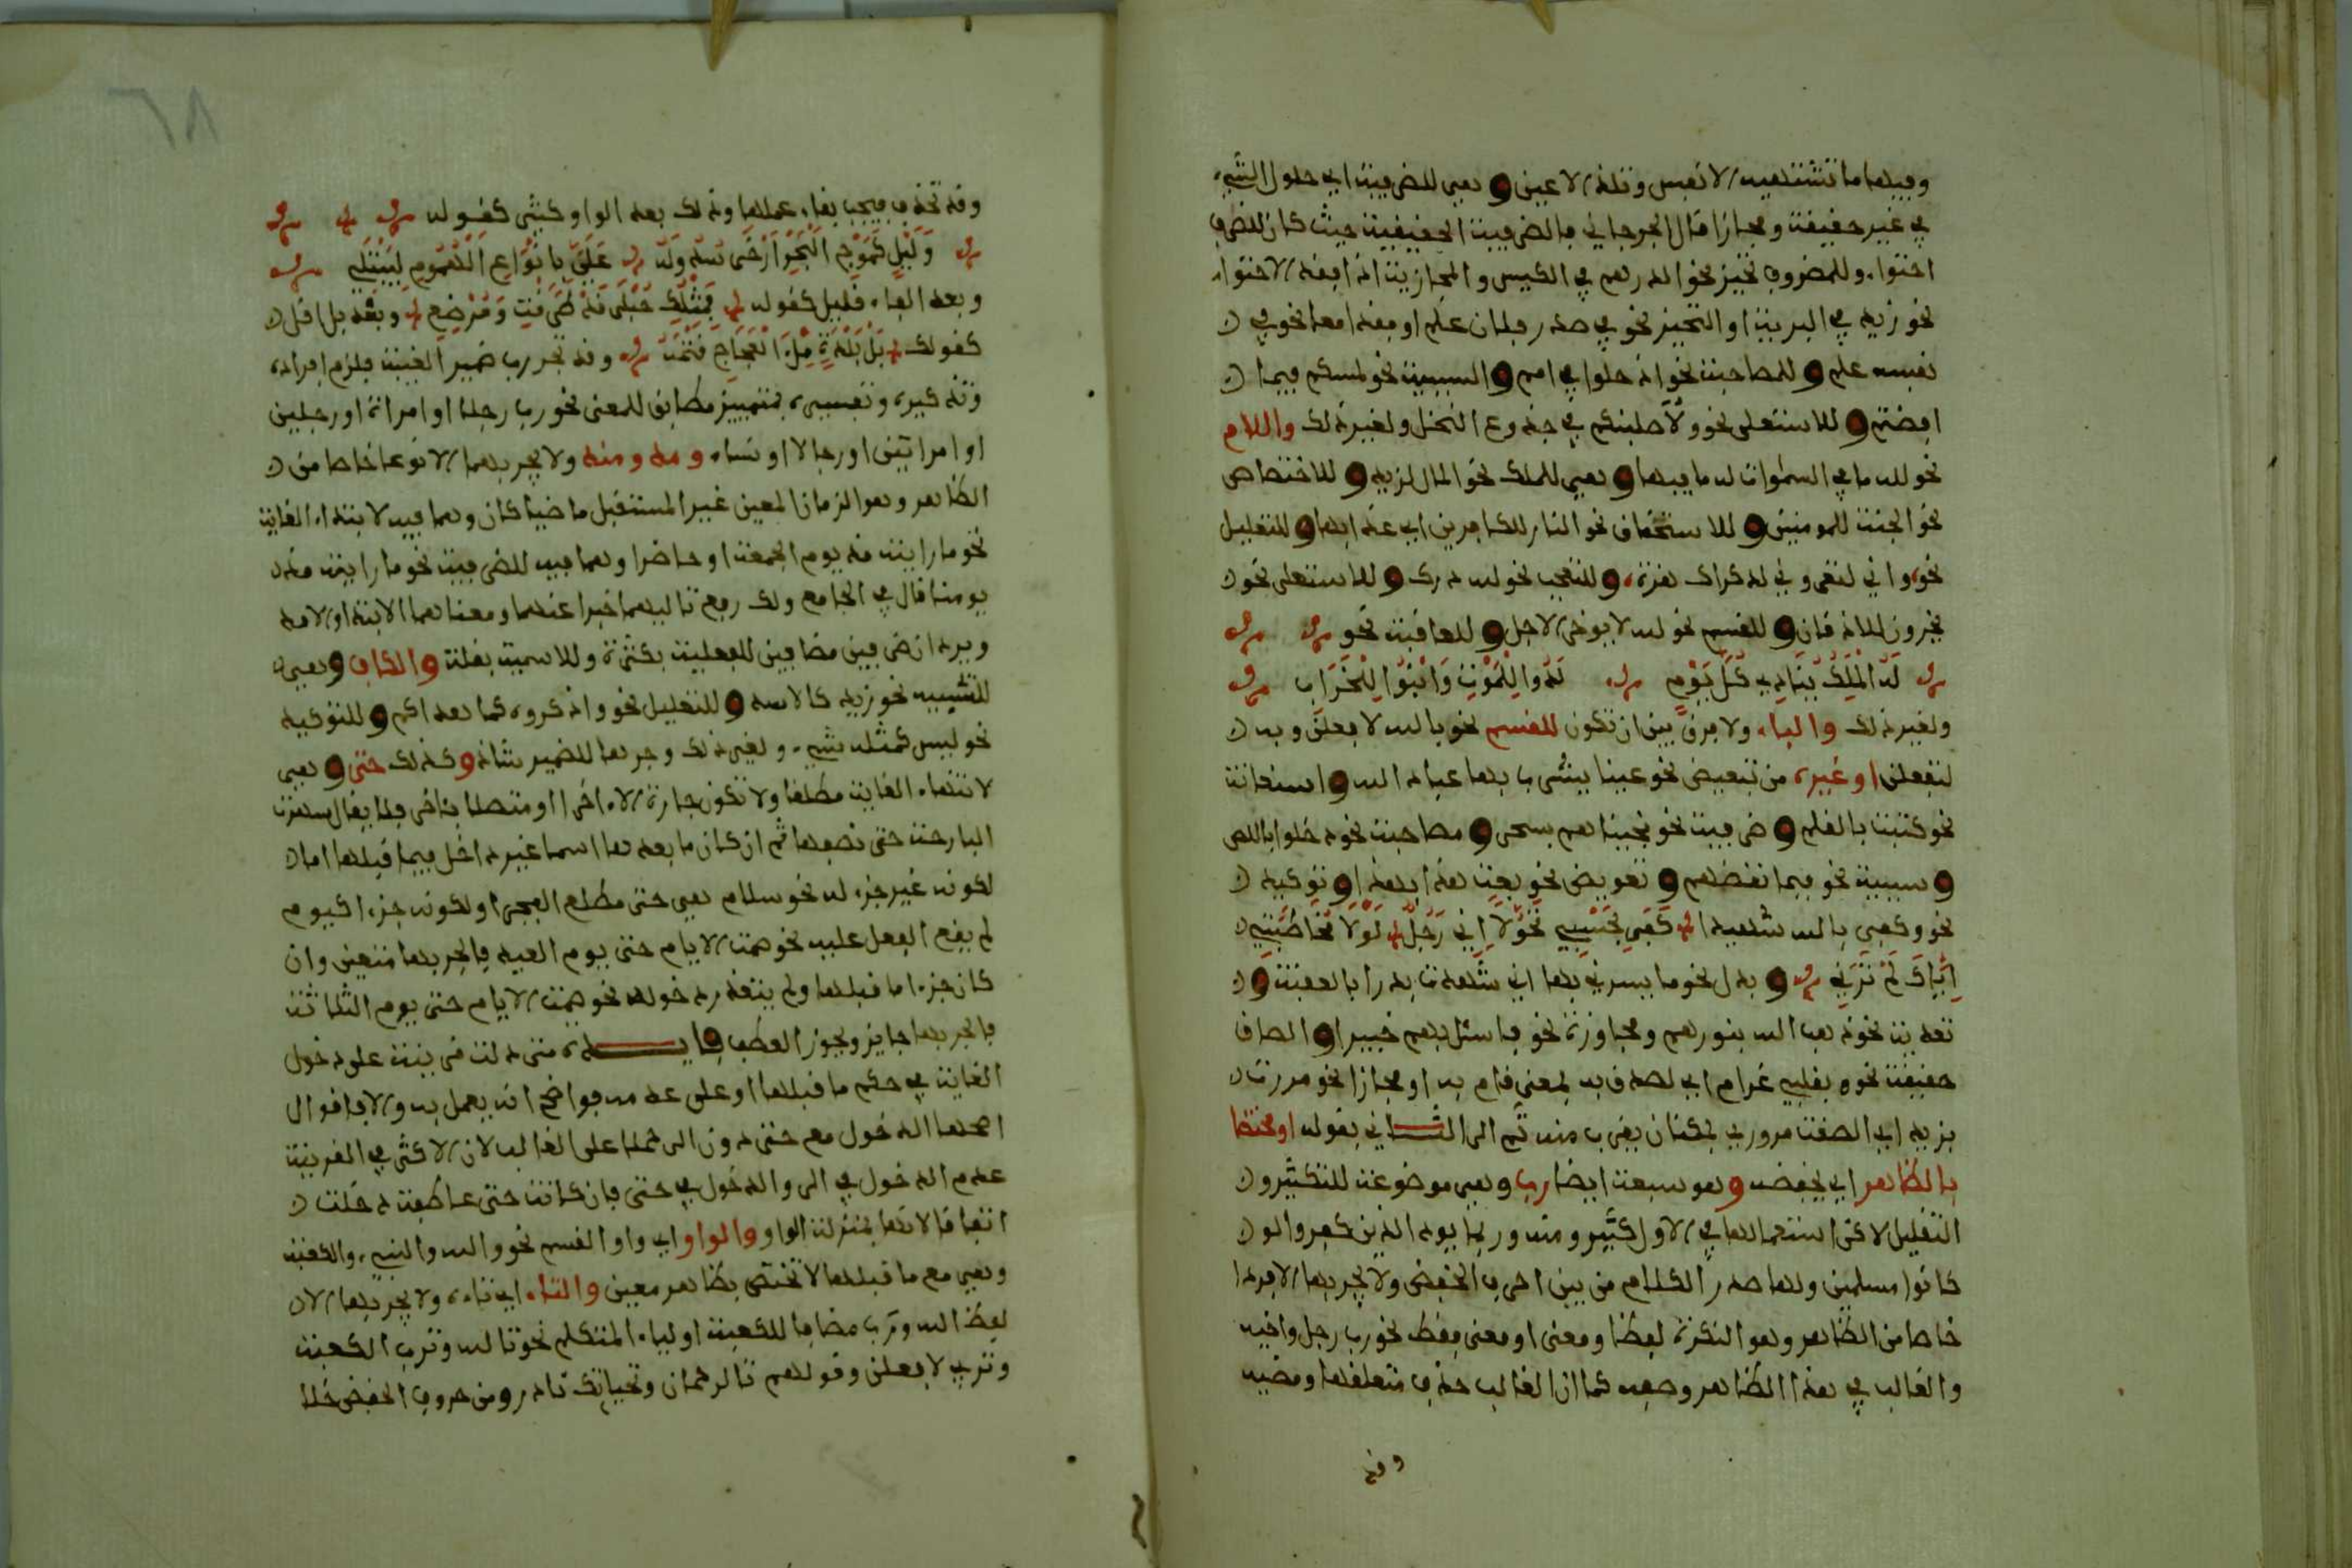 وفيها ما تشتهيه الانفس وتلذ الاعين وهي للظرفية اي حلول الشيء
في غيره حقيقة ومجازا قال الجرجاني فالظرفية الحقيقية حيث كان للظرف
احتواء وللمظروف تحيز نحو الدرهم في الكيس والمجازية اذا فقد الاحتواء
نحو زيد في البرية او التحيز نحو في صدر فلان علم او فقدا معا نحو في
نفسه علم وللمصاحبة نحو ادخلوا في امم والسببية نحو لمسكم فيما
افضتم وللاستعلى نحو ولاصلبنكم في جذوع النخل ولغير ذلك واللام
نحو لله ما في السموات له ما فيها وهي للملك نحو المال لزيد وللاختصاص
نحو الجنة للمومنين وللاستحقاق نحو النار للكافرين اي عذابها وللتعليل
نحو واني لتعروني لذكراك هزة وللتعجب نحو لله درك وللاستعلى نحو
يخرون للاذقان وللقسم نحو لله لا يوخر الاجل وللعاقبة نحو
له ملك ينادي كل يوم لدوا للموت وابنوا للخراب
ولغير ذلك والباء ولا فرق بين ان تكون للقسم نحو بالله لافعلن وبه
لتفعلن او غيره من تبعيض نحو عينا يشرب بها عباد الله واستعانة
نحو كتبت بالقلم وظرفية نحو نجيناهم بسحر ومصاحبة نحو دخلوا باللص
وسببية نحو فبما نقضهم وتعويض نحو بعت هذا بهذا وتوكيد
نحو وكفى بالله شهيدا كفى بجسمي نحولا اني رجل لولا مخاطبتي
اياك لم ترني وبدل نحو ما يسرني بها اني شهدت بدرا بالعقبة و
تعدية نحو ذهب الله بنورهم ومجاوزة نحو فاسئل بهم خبيرا والصاق
حقيقة نحو بقلبي غرام اي لصق به لمعنى قام به او مجازا نحو مررت
بزيد اي الصقت مروري لمكان يقرب منه ثم الى الثاني بقوله او مختصا
بالظاهر اي يخفضه وهو سبعة ايضا رب وهي موضوعة للتكثير و
التقليل لاكن استعمالها في الاول كثير ومنه ربما يود الذين كفروا لو
كانوا مسلمين ولها صدر الكلام من بين احرف الخفض ولا يجر بها الا فردا
خاصا من الظاهر وهو النكرة لفظا ومعنى او معنى فقط نحو رب رجل واخيه
والغالب في هذا الظاهر وصفه كما ان الغالب حذف متعلقها ومضيه
وقد
٦٨
وقد تحذف فيجب بقاء عملها وذلك بعد الواو كثير كقوله
وليل كموج البحر ارخى سدوله علي بانواع الهموم ليبتلي
وبعد الفاء قليل كقوله فمثلك حبلى قد طرقت ومرضع وبعد بل اقل
كقولك بل بلد ملء الفجاج قتمه وقد تجر رب ضمير الغيبة فلزم افراده
وتذكيره وتفسيره بتمييز مطابق للمعنى نحو ربه رجلا او امراة او رجلين
او امراتين او رجالا او نساء ومذ ومنذ ولا يجر بهما الا نوعا خاصا من
الظاهر وهو الزمان المعين غير المستقبل ماضيا كان وهما فيه لابتداء الغاية
نحو ما رايته مذ يوم الجمعة او حاضرا وهما فيه للظرفية نحو ما رايته منذ
يومنا قال في الجامع ولك رفع تاليهما خبرا عنهما ومعناهما الابتدا والامد
ويردان ظرفين مضافين للفعلية بكثرة وللاسمية بقلة والكاف وهي
للتشبيه نحو زيد كالاسد وللتعليل نحو واذكروه كما هداكم وللتوكيد
نحو ليس كمثله شيء ولغير ذلك وجرها للضمير شاذ وكذلك حتى وهي
لانتهاء الغاية مطلقا ولا تكون جارة الا اخرا او متصلا باخر فلا يقال سهرت
البارحة حتى نصفها ثم ان كان ما بعدها اسما غير داخل فيما قبلها اما
لكونه غير جزء له نحو سلام هي حتى مطلع الفجر او لكونه جزءا كيوم
لم يقع الفعل عليه نحو صمت الايام حتى يوم العيد فالجر بها متعين وان
كان جزءا مما قبلها ولم يتعذر دخوله نحو صمت الايام حتى يوم الثلاثة
فالجر بها جايز ويجوز العطف فايدة متى دلت قرينة على دخول
الغاية في حكم ما قبلها او على عدمه فواضح انه يعمل به والا فاقوال
اصحها الدخول مع حتى دون الى حملا على الغالب لان الاكثر في القرينة
عدم الدخول في الى والدخول في حتى فان كانت حتى عاطفة دخلت
اتفاقا لانها بمنزلة الواو والواو اي واو القسم نحو والله والنبيء والكعبة
وهي مع ما قبلها لا تختص بظاهر معين والتاء اي تاءه ولا يجر بها الا
لفظ الله ورب مضافا للكعبة او لياء المتكلم نحو تالله وترب الكعبة
وتربي لافعلن وقولهم تالرحمان وتحياتك نادر ومن حروف الخفض خلا